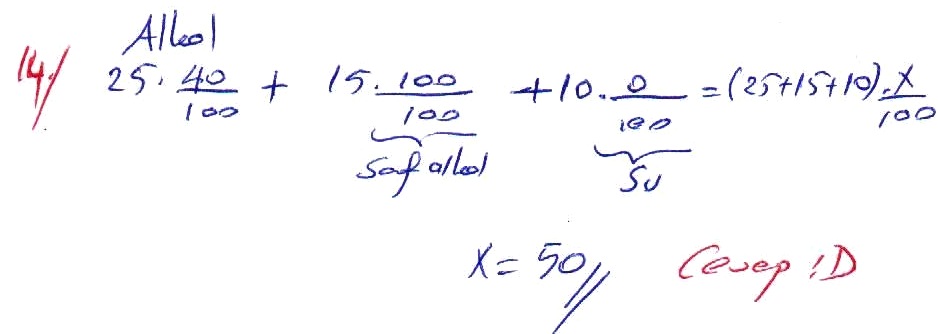 Alkol
14) 25 · 40/100 + 15 · 100/100 + 10 · 0/100 = (25+15+10) · x/100
Saf alkol Su
x = 50 // Cevap : D